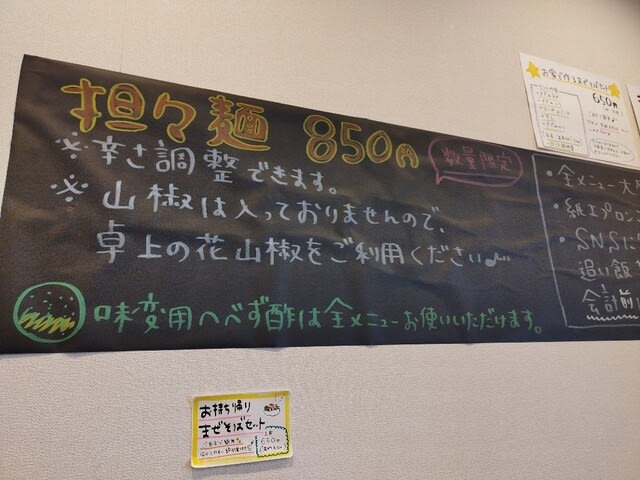 担々麺 850円 数量限定
※辛さ調整できます。
※山椒は入っておりませんので、
卓上の花山椒をご利用ください♪
味変用へべず酢は全メニューお使いいただけます。
・全メニュー大
・紙エプロン
・SNSに
追い飯
会計前
お家で作るまぜそばセット
650円
お持ち帰り
まぜそばセット
650円